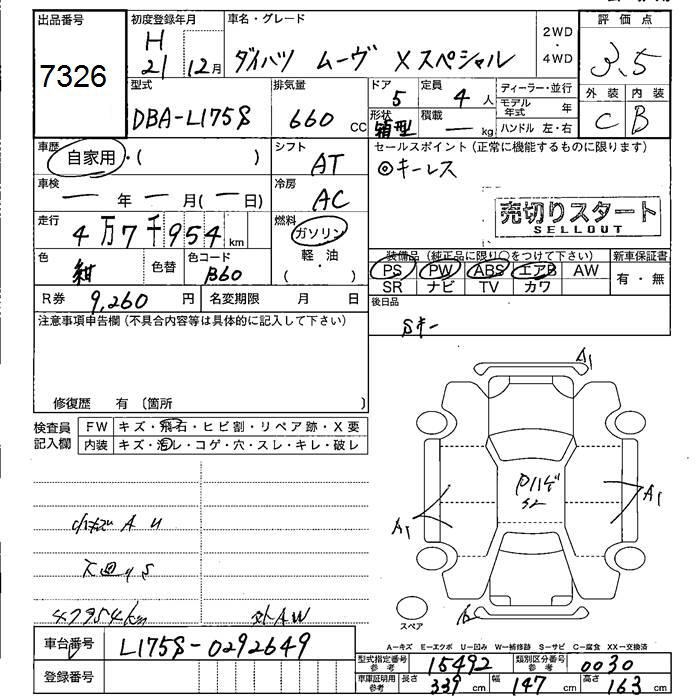 出品番号
7326
初度登録年月
H
21 12月
車名・グレード
ダイハツ ムーヴ Xスペシャル
2WD
・
4WD
評価点
3.5
外装 内装
C B
型式
DBA-L175S
排気量
660 cc
ドア
5
定員
4 人
形状
箱型
積載
― kg
ディーラー・並行
モデル年式 年
ハンドル 左・右
車歴
自家用・( )
シフト
AT
セールスポイント(正常に機能するものに限ります)
◎キーレス
売切りスタート
SELLOUT
車検
― 年 ― 月(― 日)
冷房
AC
走行
4万7千954km
燃料
ガソリン
軽・油
( )
色
紺
色替
色コード
B60
装備品(純正品に限り○をつけて下さい)
PS PW ABS エアB AW
SR ナビ TV カワ
新車保証書
有・無
R券 9,260 円
名変期限 月 日
後日品
Sキー
注意事項申告欄(不具合内容等は具体的に記入して下さい)
修復歴 有〔箇所 〕
検査員
記入欄
FW キズ・飛石・ヒビ割・リペア跡・X要
内装 キズ・汚レ・コゲ・穴・スレ・キレ・破レ
A1
A1
A1
小キズ A U
下廻りS
47954km
外AW
スペア
車台番号 L175S-0292649
登録番号
A-キズ E-エクボ U-凹み W-補修跡 S-サビ C-腐食 XX-交換済
型式指定番号 参考 15492
類別区分番号 参考 0030
車庫証明用 参考 長さ 339 cm 幅 147 cm 高さ 163 cm